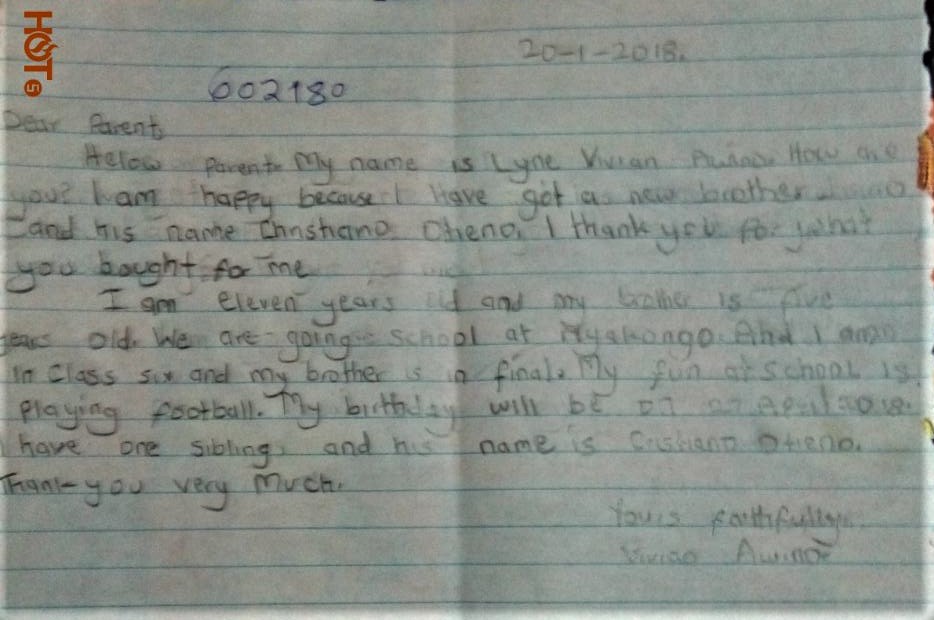 HOT 5
20-1-2018.
602180
Dear Parent,
Helow Parent. My name is Lyne Vivian Awino. How are
you? I am happy because I Have got a new brother
and his name Christiano Otieno. I thank you for what
you bought for me
I am eleven years old and my brother is five
years old. We are going school at Nyakongo. And I am
in Class six and my brother is in final. My fun at School is
Playing football. My birthday will be on 27 April 2018.
I have one sibling and his name is Cristiano Otieno.
Thank you very Much.
Yours faithfully
Vivian Awino